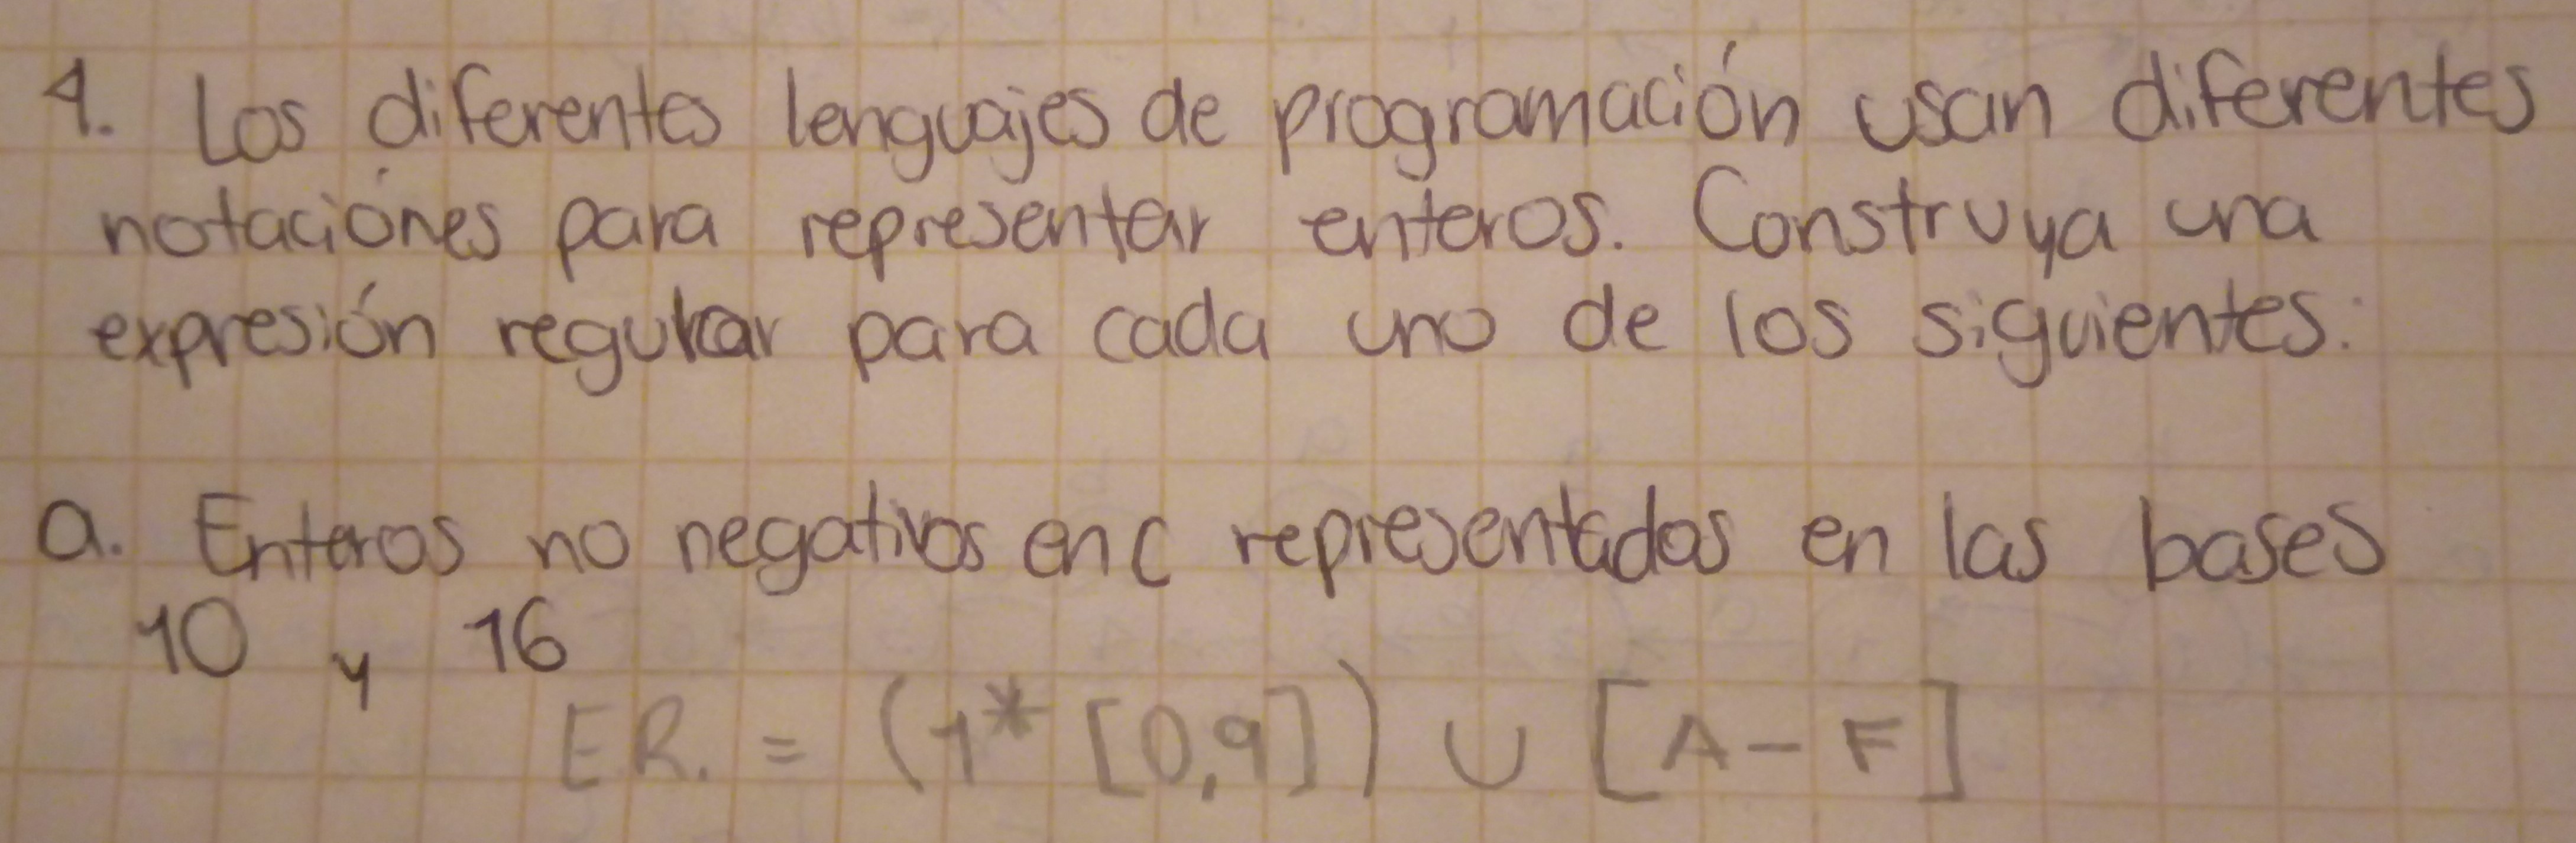 4. Los diferentes lenguajes de programación usan diferentes
notaciónes para representar enteros. Construya una
expresión regular para cada uno de los siguientes:
a. Enteros no negativos en C representados en las bases
10 y 16
E.R. = (1* [0,9]) ∪ [A - F]